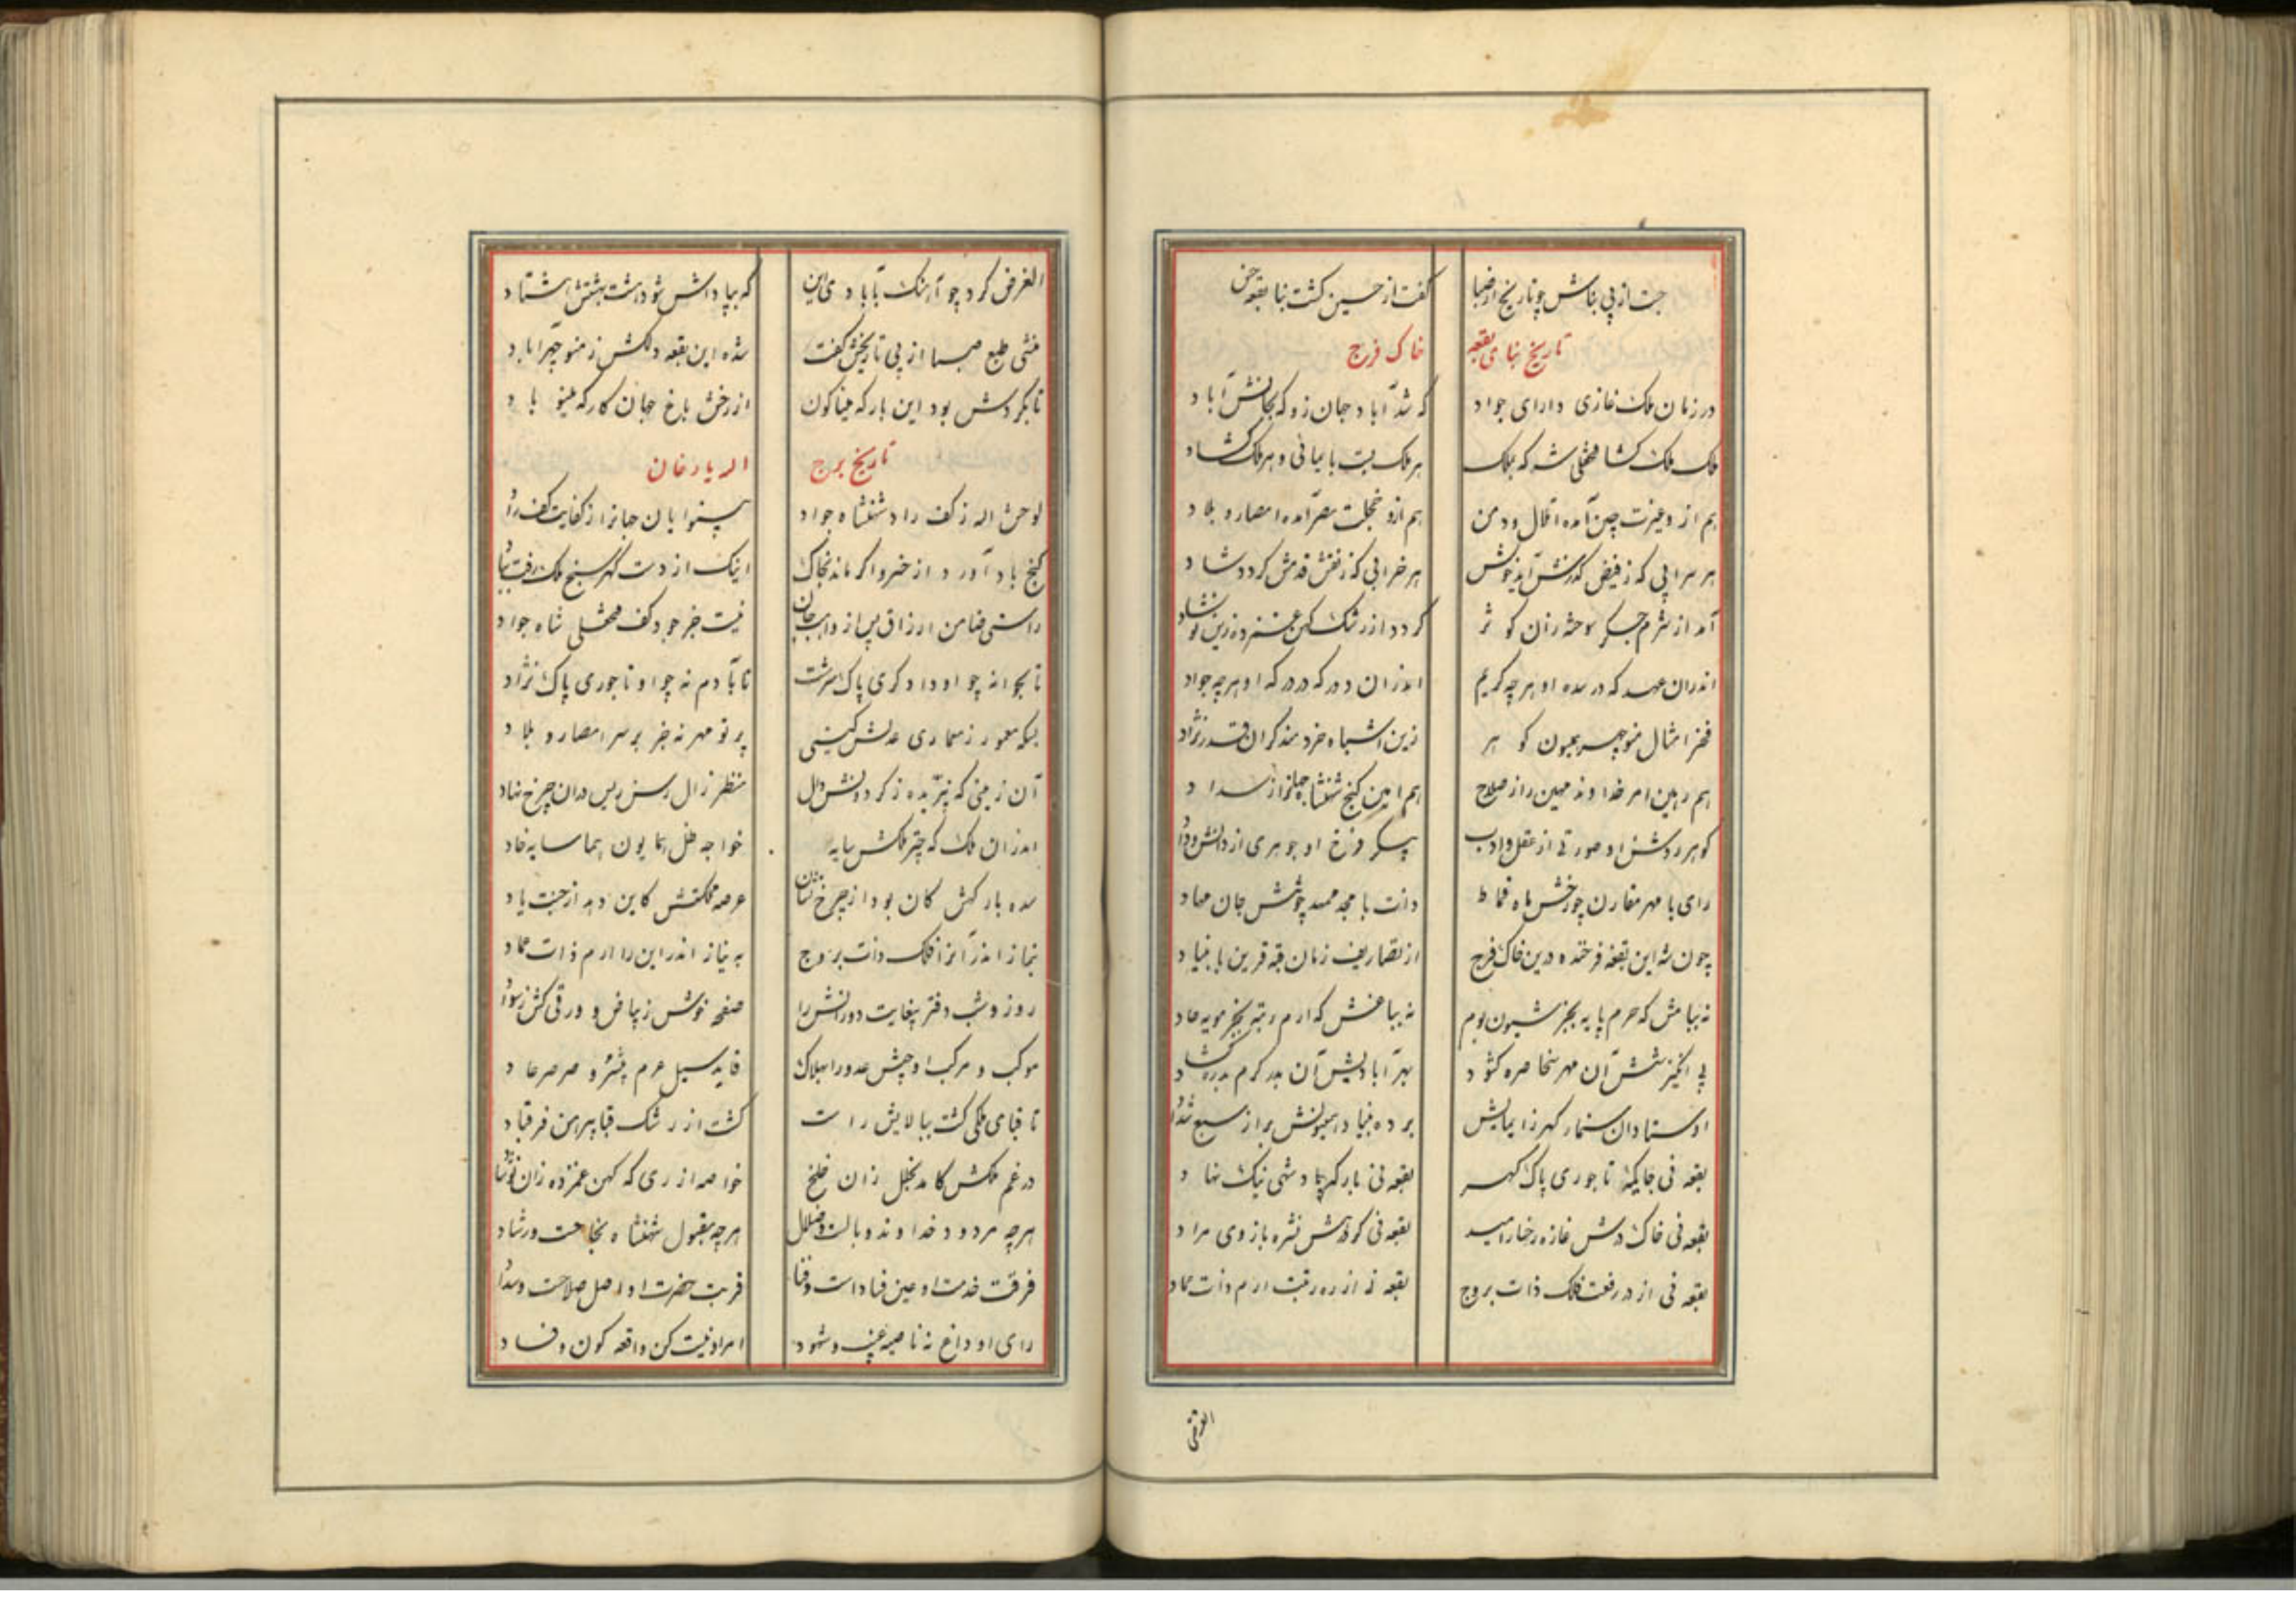 جست از پی بناش چو تاریخ از صبا
گفت از حسین گشت بنا بقعه حسن
تاریخ بنای بقعه
خاک فرج
در زمان ملک غازی دارای جواد
که شد آباد جهان زو که بجانش آباد
ملک ملک گشا فتحعلی شه که بملک
هر ملک بست باسانی و هر ملک گشاد
هم ازو غیرت چین آمده اتلال و دمن
هم ازو خجلت مصر آمده امصار و بلاد
هر سرابی که ز فیض گذرش آید خوش
هر خرابی که ز نقش قدمش گردد شاد
آمد از شرم جگر سوخته زان کوثر
گردد از رشک کهن غمزده زین نوشاد
اندران عهد که در سده او هر چه کریم
اندران دور که در درگه او هر چه جواد
فخر امثال منوچهر همیون گوهر
زین اشباه خردمند گران قدر نژاد
هم رهین امر خداوند مهین را ز صلاح
هم امین گنج شهنشاه جهانرا ز سداد
گوهر روشن او صورتی از عقل و ادب
پیکر فرخ او جوهری از دانش و داد
رای با مهر مقارن چو رخش ماه قماط
ذات با مجد ممهد چو تنش جان مهاد
چون شه این بقعه فرخنده درین خاک فرج
از تصاریف زمان قبه قرین با بنیاد
نه ببامش که حرم پایه بجز شیون بوم
نه بباغش که ارم رتبه بجز مویه خاد
پی انگیزشش آن مهر سخا صره گشود
بهر آبادیش آن بدر کرم بدره گشاد
اوستادان سنمار گهر زایمایش
برده بنیاد همیونش بر از سبع شداد
بقعه نی جایگه تاجوری پاک گهر
بقعه نی بارگه پادشهی نیک نهاد
بقعه نی خاک درش غازه رخسار امید
بقعه نی گرد رهش نشره بازوی مراد
بقعه نی از در رفعت فلک ذات بروج
بقعه نی از ره رتبت ارم ذات عماد
الغرض
الغرض کرد چو آهنک بآبادی این
که بپاداش شود هشت بهشتش هشتاد
منشی طبع صبا از پی تاریخش گفت
شده این بقعه دلکش ز منوچهر آباد
تا بگردش بود این بارگه مینا گون
از رخش باغ جهان کارگه مینو باد
تاریخ برج
اله یار خان
لوحش اله ز کف راد شهنشاه جواد
بینوایان جهانرا ز کفایت کف راد
گنج باد آورد از خسرو اگر ماند بخاک
اینک از دست گهر سنج ملک رفت بباد
راستی ضامن ارزاق پس از واهب جان
نیست جز جود کف فتحعلی شاه جواد
تا بجوانه چو او دادگری پاک سرشت
تا بآدم نه چو او تاجوری پاک نژاد
بسکه معمور ز معماری عدلش گیتی
پرتو مهر نه جز بر سر امصار و بلاد
آن زمینی که نپریده ز گردونش دال
منظر زال رسن ریس در آن چرخ نهاد
اندران ملک که چتر ملکش سایه
خواجه ظل همایون هما سایه خاد
سده بارگهش کان بود از چرخ نشان
عرصه مملکتش کاین دهد از جنت یاد
بنماز اندر آنرا فلک ذات بروج
به نیاز اندر این را ارم ذات عماد
روز و شب دفتر بیغایت دورانش را
صفحه خوشی ز بیاض و ورقی کش ز سواد
موکب و مرکب او جیش عدو را بهلاک
قاید سیل عرم پیشرو صرصر عاد
تا قبای ملکی گشت ببالایش راست
گشت از رشک قبا پیرهن فر قباد
در غم ملکش کامد بخجل زان خلخ
خواصه از ری که کهن غمزده زان نوشاد
هر چه مردود خداوند وبالست و ضلال
هر چه مقبول شهنشاه نجاحست و رشاد
فرقت خدمت او عین فساد است و فنا
قربت حضرت او اصل صلاحست و سداد
رای او داغ نه ناصیه غیب و شهود
امر او نیست کن واقعه کون و فساد